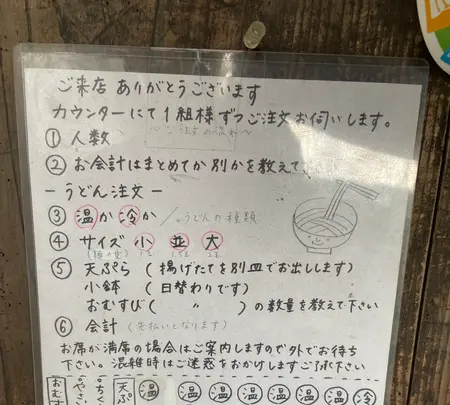 ご来店 ありがとうございます
カウンターにて1組様ずつご注文お伺いします。
① 人数
② お会計はまとめてか別かを教えて、
ーうどん注文ー
③ 温か冷か / うどんの種類
④ サイズ 小 並 大
⑤ 天ぷら (揚げたてを別皿でお出しします)
小鉢 (日替わりです)
おむすび ( 〃 ) の数量を教えて下さい
⑥ 会計 (先払いとなります)
お席が満席の場合はご案内しますので外でお待ち
下さい。混雑時はご迷惑をおかけしますご了承下さい
おむす
ちく
天ぷ
温 温 温 温 温 冷